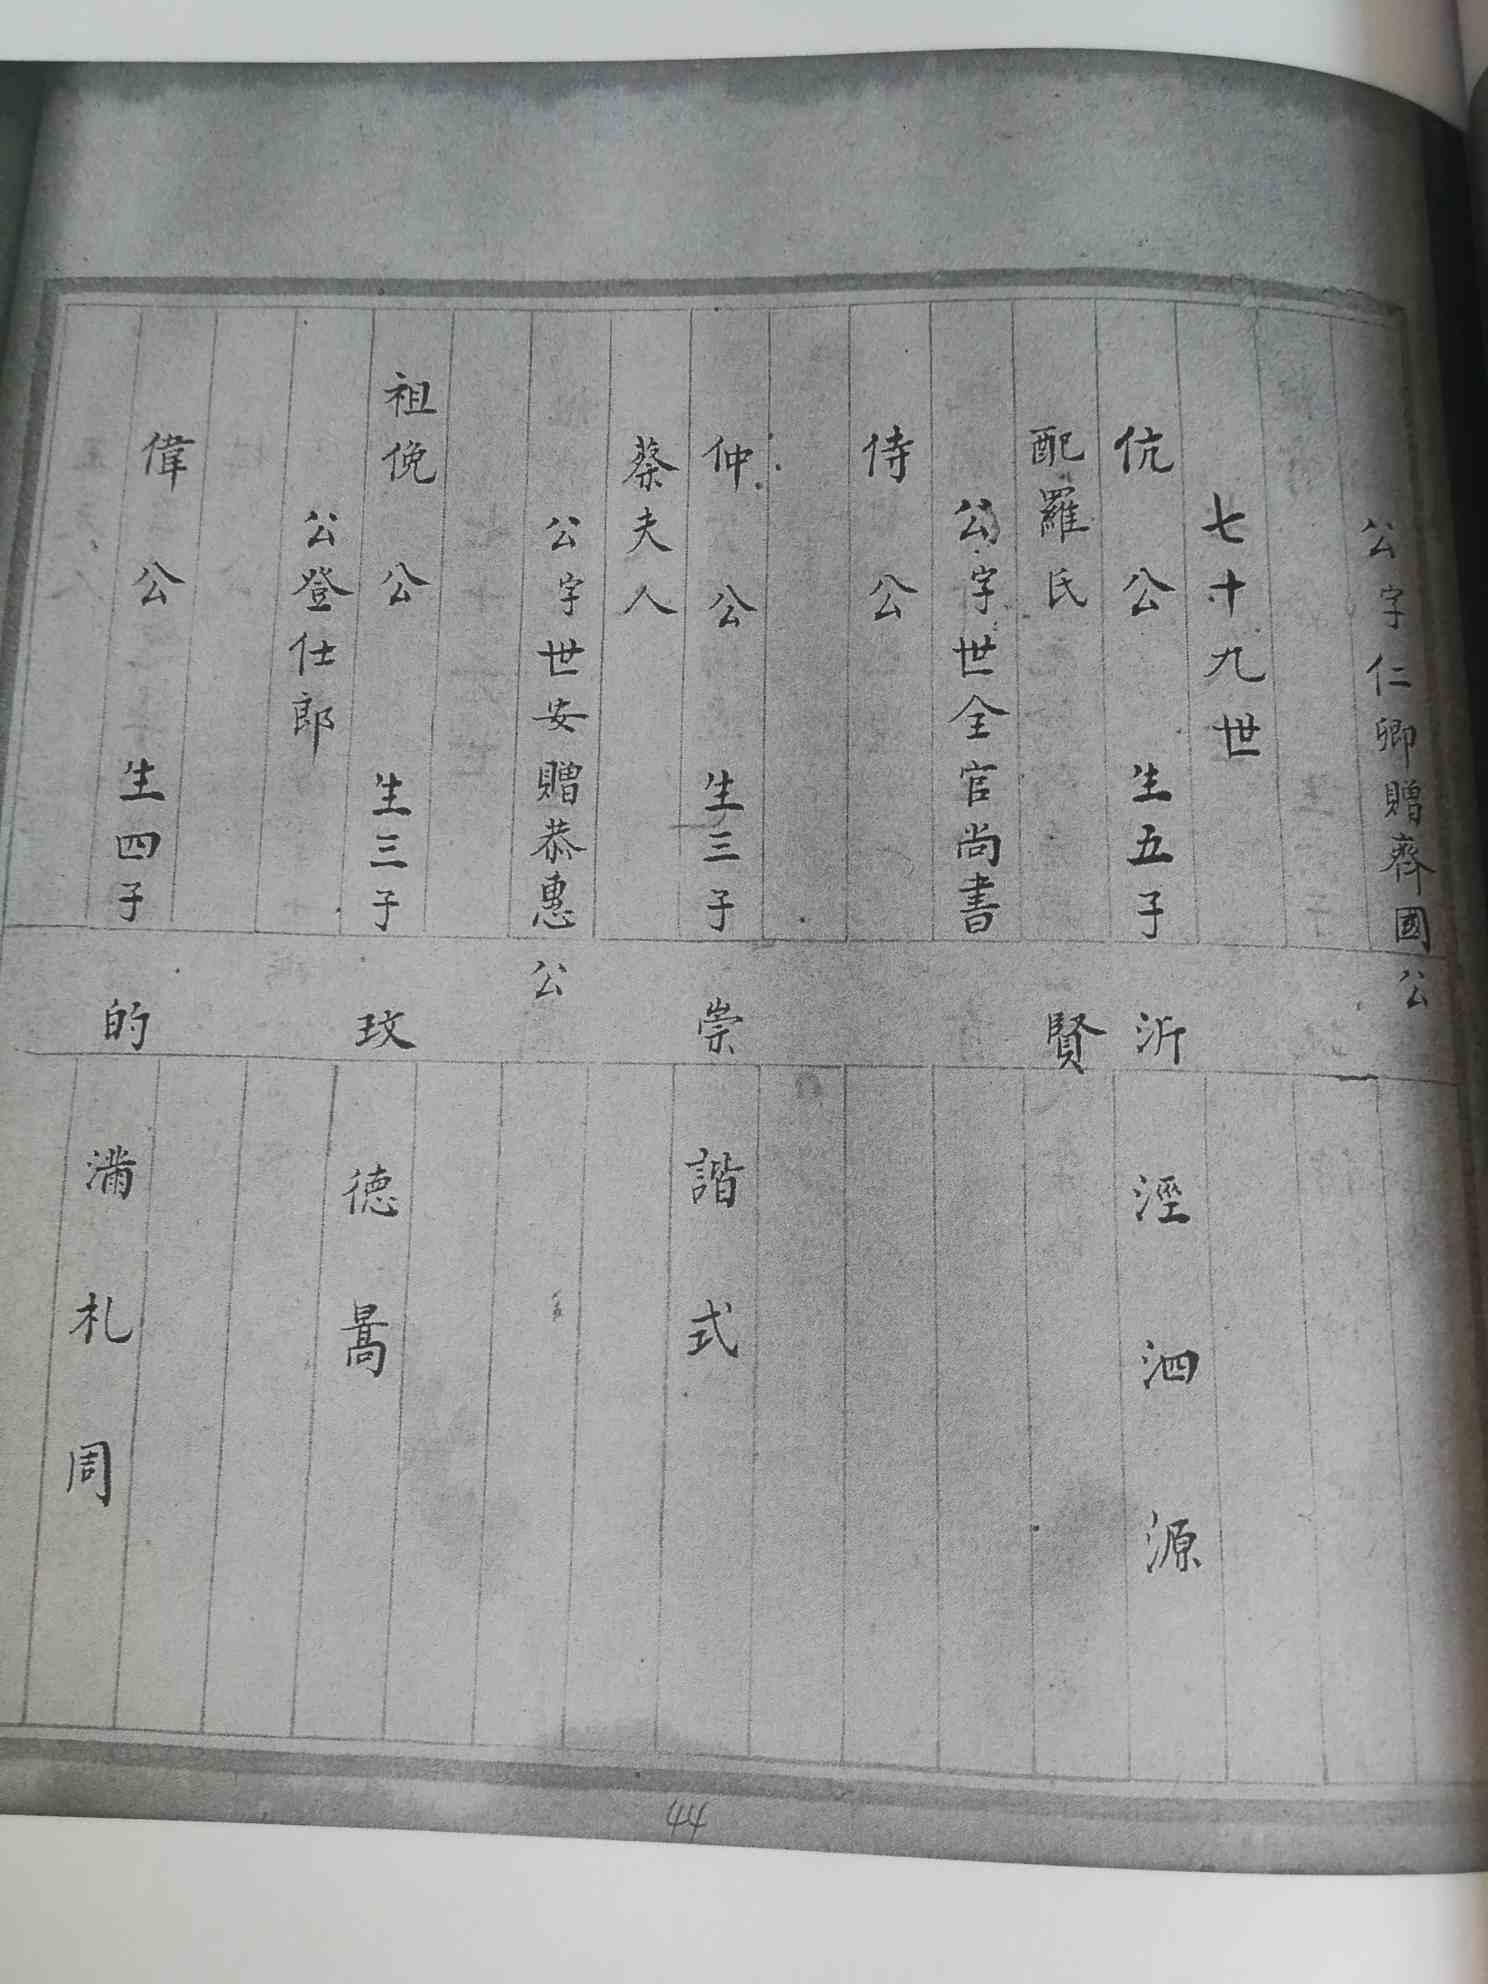 公字仁卿贈齊國公
七十九世
伉公 生五子 沂 涇 泗 源
配羅氏 賢
公字世全官尚書
侍公
仲公 生三子 崇 諧 式
蔡夫人
公字世安贈恭惠公
祖俛公 生三子 玟 德 暠
公登仕郎
偉公 生四子 的 满 札 周
44